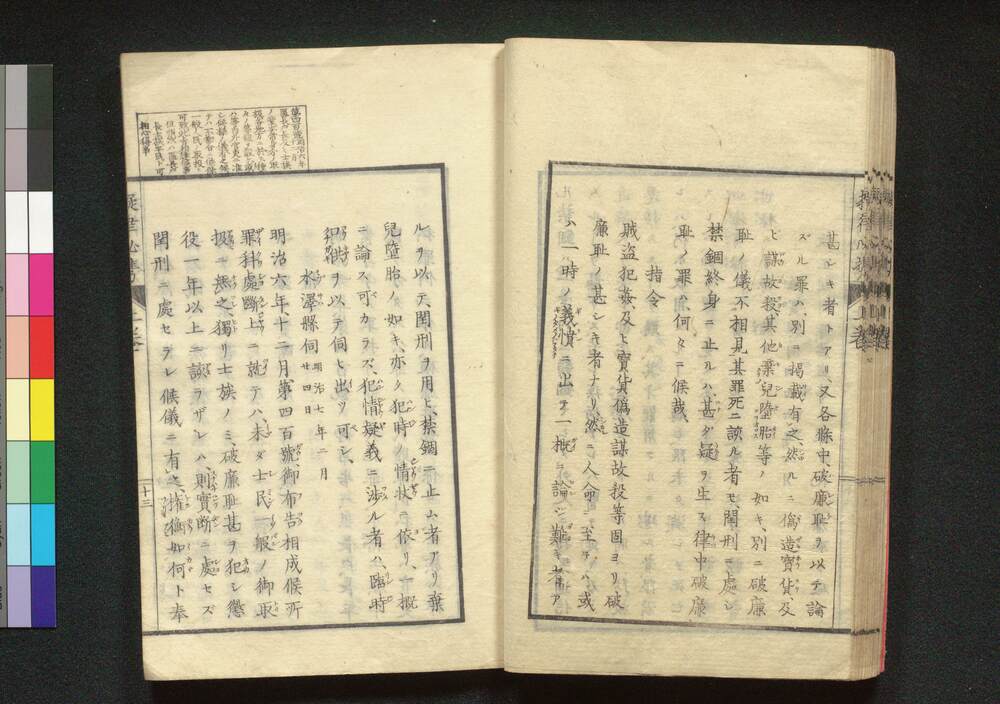 甚シキ者トアリ、又各條中、破廉耻ヲ以テ論
ズル罪ハ、別ニ掲載有之、然ルニ僞造寶貨、及
ヒ謀故殺、其他棄兒墮胎等ノ如キ、別ニ破廉
耻ノ儀不相見、其罪死ニ該ル者モ、閏刑ニ處シ
禁錮終身ニ止ルハ、甚ダ疑ヲ生ス、律中破廉
耻ノ罪、何々ニ候哉
指令
賊盗犯姦、及ヒ寶貨僞造謀故殺等固ヨリ破
廉耻ノ甚シキ者ナリ、然ニ人命ニ至テハ、或
ハ一時ノ義憤ニ出テ、一概ニ論シ難キ者ア
ルヲ以テ、閏刑ヲ用ヒ、禁錮ニ止ム者アリ、棄
兒墮胎ノ如キ、亦タ犯時ノ情状ニ依リ、一概
ニ論ス可カラズ、犯情疑義ニ渉ル者ハ、臨時
犯供ヲ以テ伺ヒ出ツ可シ、
水澤縣伺 明治七年二月廿四日
明治六年十二月第四百號御布告相成候所
罪科處斷上ニ就テハ、未ダ士民一般ノ御取
扱ニ無之、獨リ士族ノミ、破廉耻甚ヲ犯シ懲
役一年以上ニ該ラザレハ、則實斷ニ處セズ
閏刑ニ處セラレ候儀ニ有之、權衡如何ト奉
十三